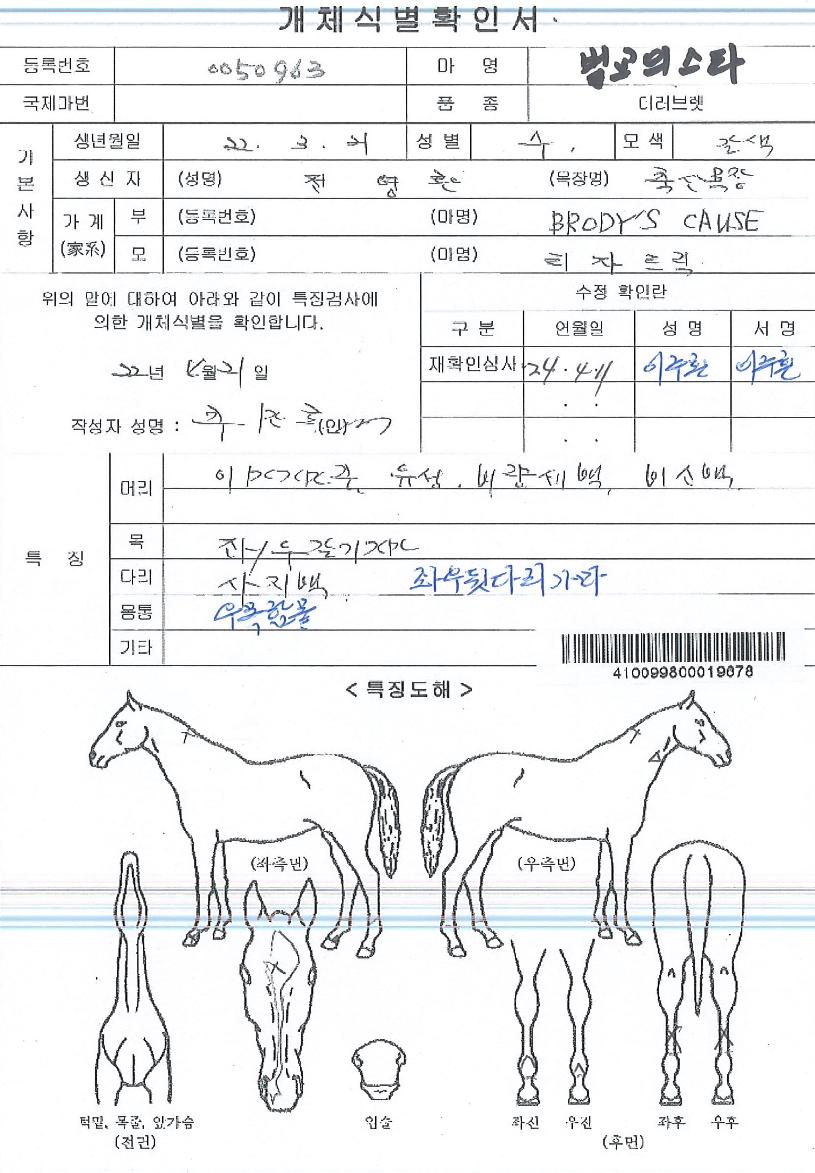 개체식별확인서
등록번호 0050963 마 명 벌교의스타
국제마번 품 종 더러브렛
기본사항
생년월일 22. 3. 21 성별 수. 모색 갈색
생산자 (성명) 전영훈 (목장명) 축산목장
가계 (家系) 부 (등록번호) (마명) BRODY'S CAUSE
모 (등록번호) (마명) 티자트릭
위의 말에 대하여 아래와 같이 특징검사에
의한 개체식별을 확인합니다.
22년 월 21일
작성자 성명 : (인)
수정 확인란
구 분 연월일 성 명 서 명
재확인심사 24. 4. 11
특 징
머리 유성. 비량세백, 비소백.
목
다리 사지백 좌우뒷다리가마
몸통
기타
410099800019678
< 특징도해 >
(좌측면) (우측면)
턱밑, 목줄, 앞가슴 입술 좌전 우전 좌후 우후
(전면) (후면)